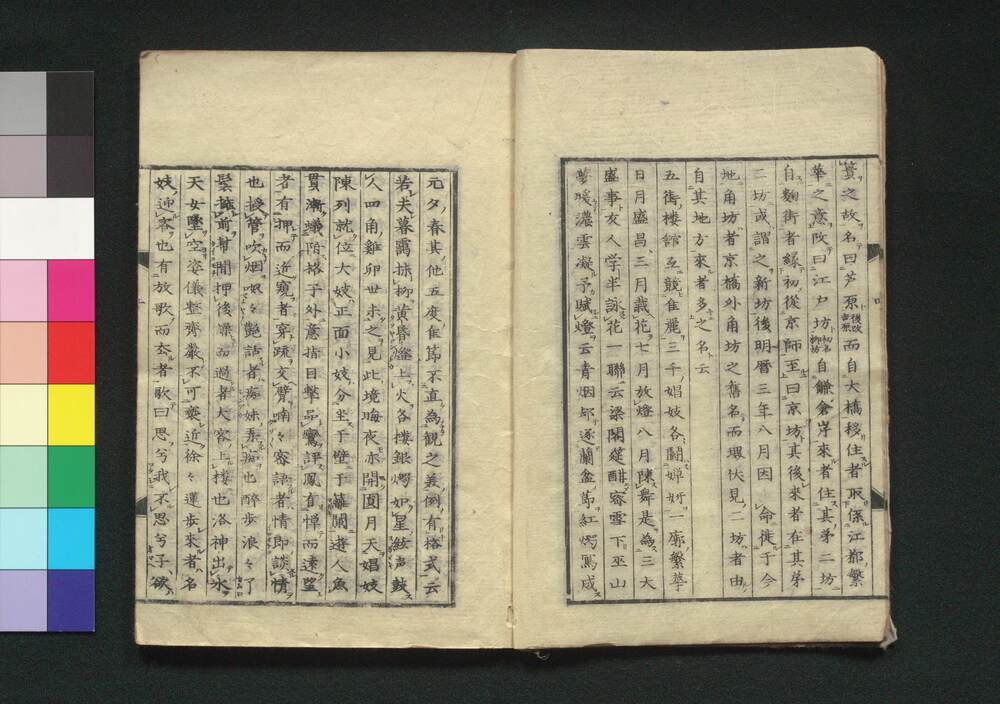 簀之故名曰芦原後改吉原而自大橋移住者取係江都繁
華之意改曰江戸坊初名柳坊自鎌倉岸來者住其第二坊
自麹街者縁初從京師至曰京坊其後來者在其第
二坊或謂之新坊後明暦三年八月因 命徙于今
地角坊者京橋外角坊之舊名而堺伏見二坊者由
自其地方來者多之名云
五街樓館互競佳麗三千娼妓各鬪嬋妍一廓繁華
日月盛昌三月栽花七月放燈八月陳舞是為三大
盛事友人学半詠花一聯云梁閣筵酣容雪下巫山
夢暖濃雲凝予賦燈云青烟却逐蘭盆節紅燭寫成
元夕春其他五度佳節不直為観之美例有格式云
若夫暮靄抹柳黄昏上火各樓銀燭如星絃声鼓
人四角雞卵世未之見此境晦夜亦開圓月天娼妓
陳列就位大妓正面小妓分坐于壁于幕閙遊人魚
貫漸蟻階格子外意指目撃品騭評鳳有憚而遠望
者有押而近窺者穿疏交臂喃々密語者情郎談情
也援管吹烟呶々艶話者痴妹弄痴也醉歩浪々了
鬟擁前幇間押後樂而過者大客上樓也洛神出水
天女墜空姿儀整齊嚴不可褻近徐々蓮歩來者名
妓迎客也有放歌而去者歌曰思兮我不思兮子欲